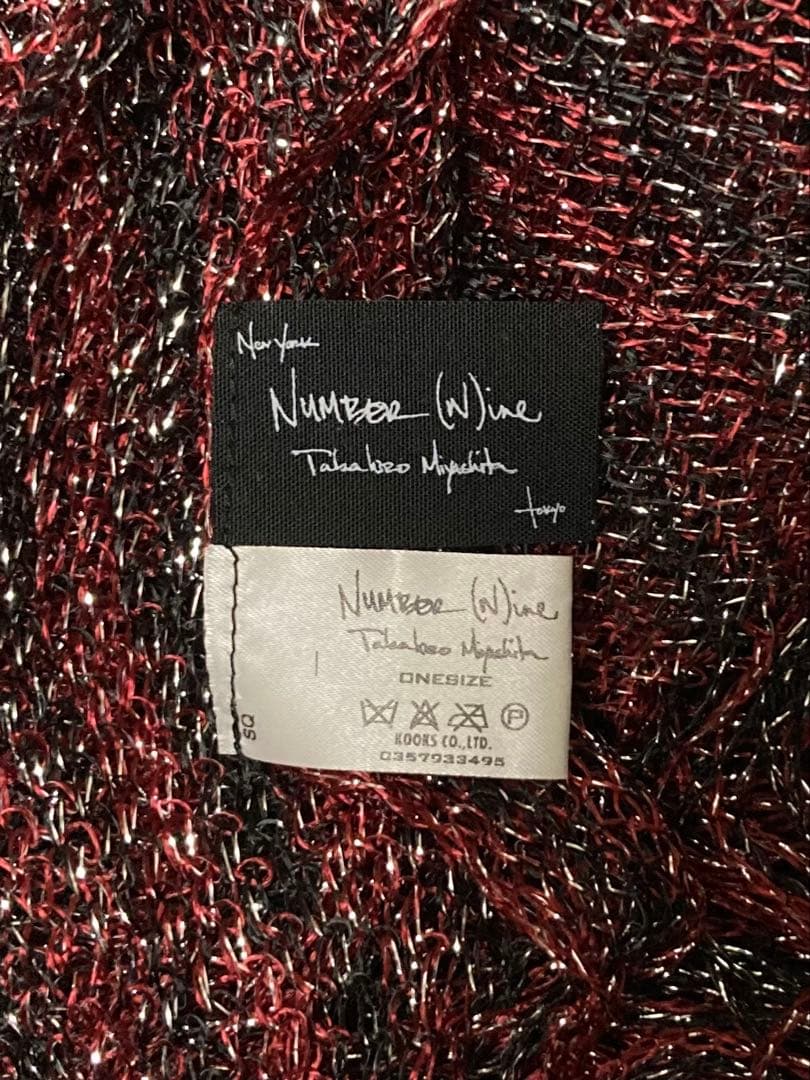 New York
NUMBER (N)ine
Takahiro Miyashita
tokyo
NUMBER (N)ine
Takahiro Miyashita
ONESIZE
P
KOOKS CO.,LTD.
0357933495
SQ